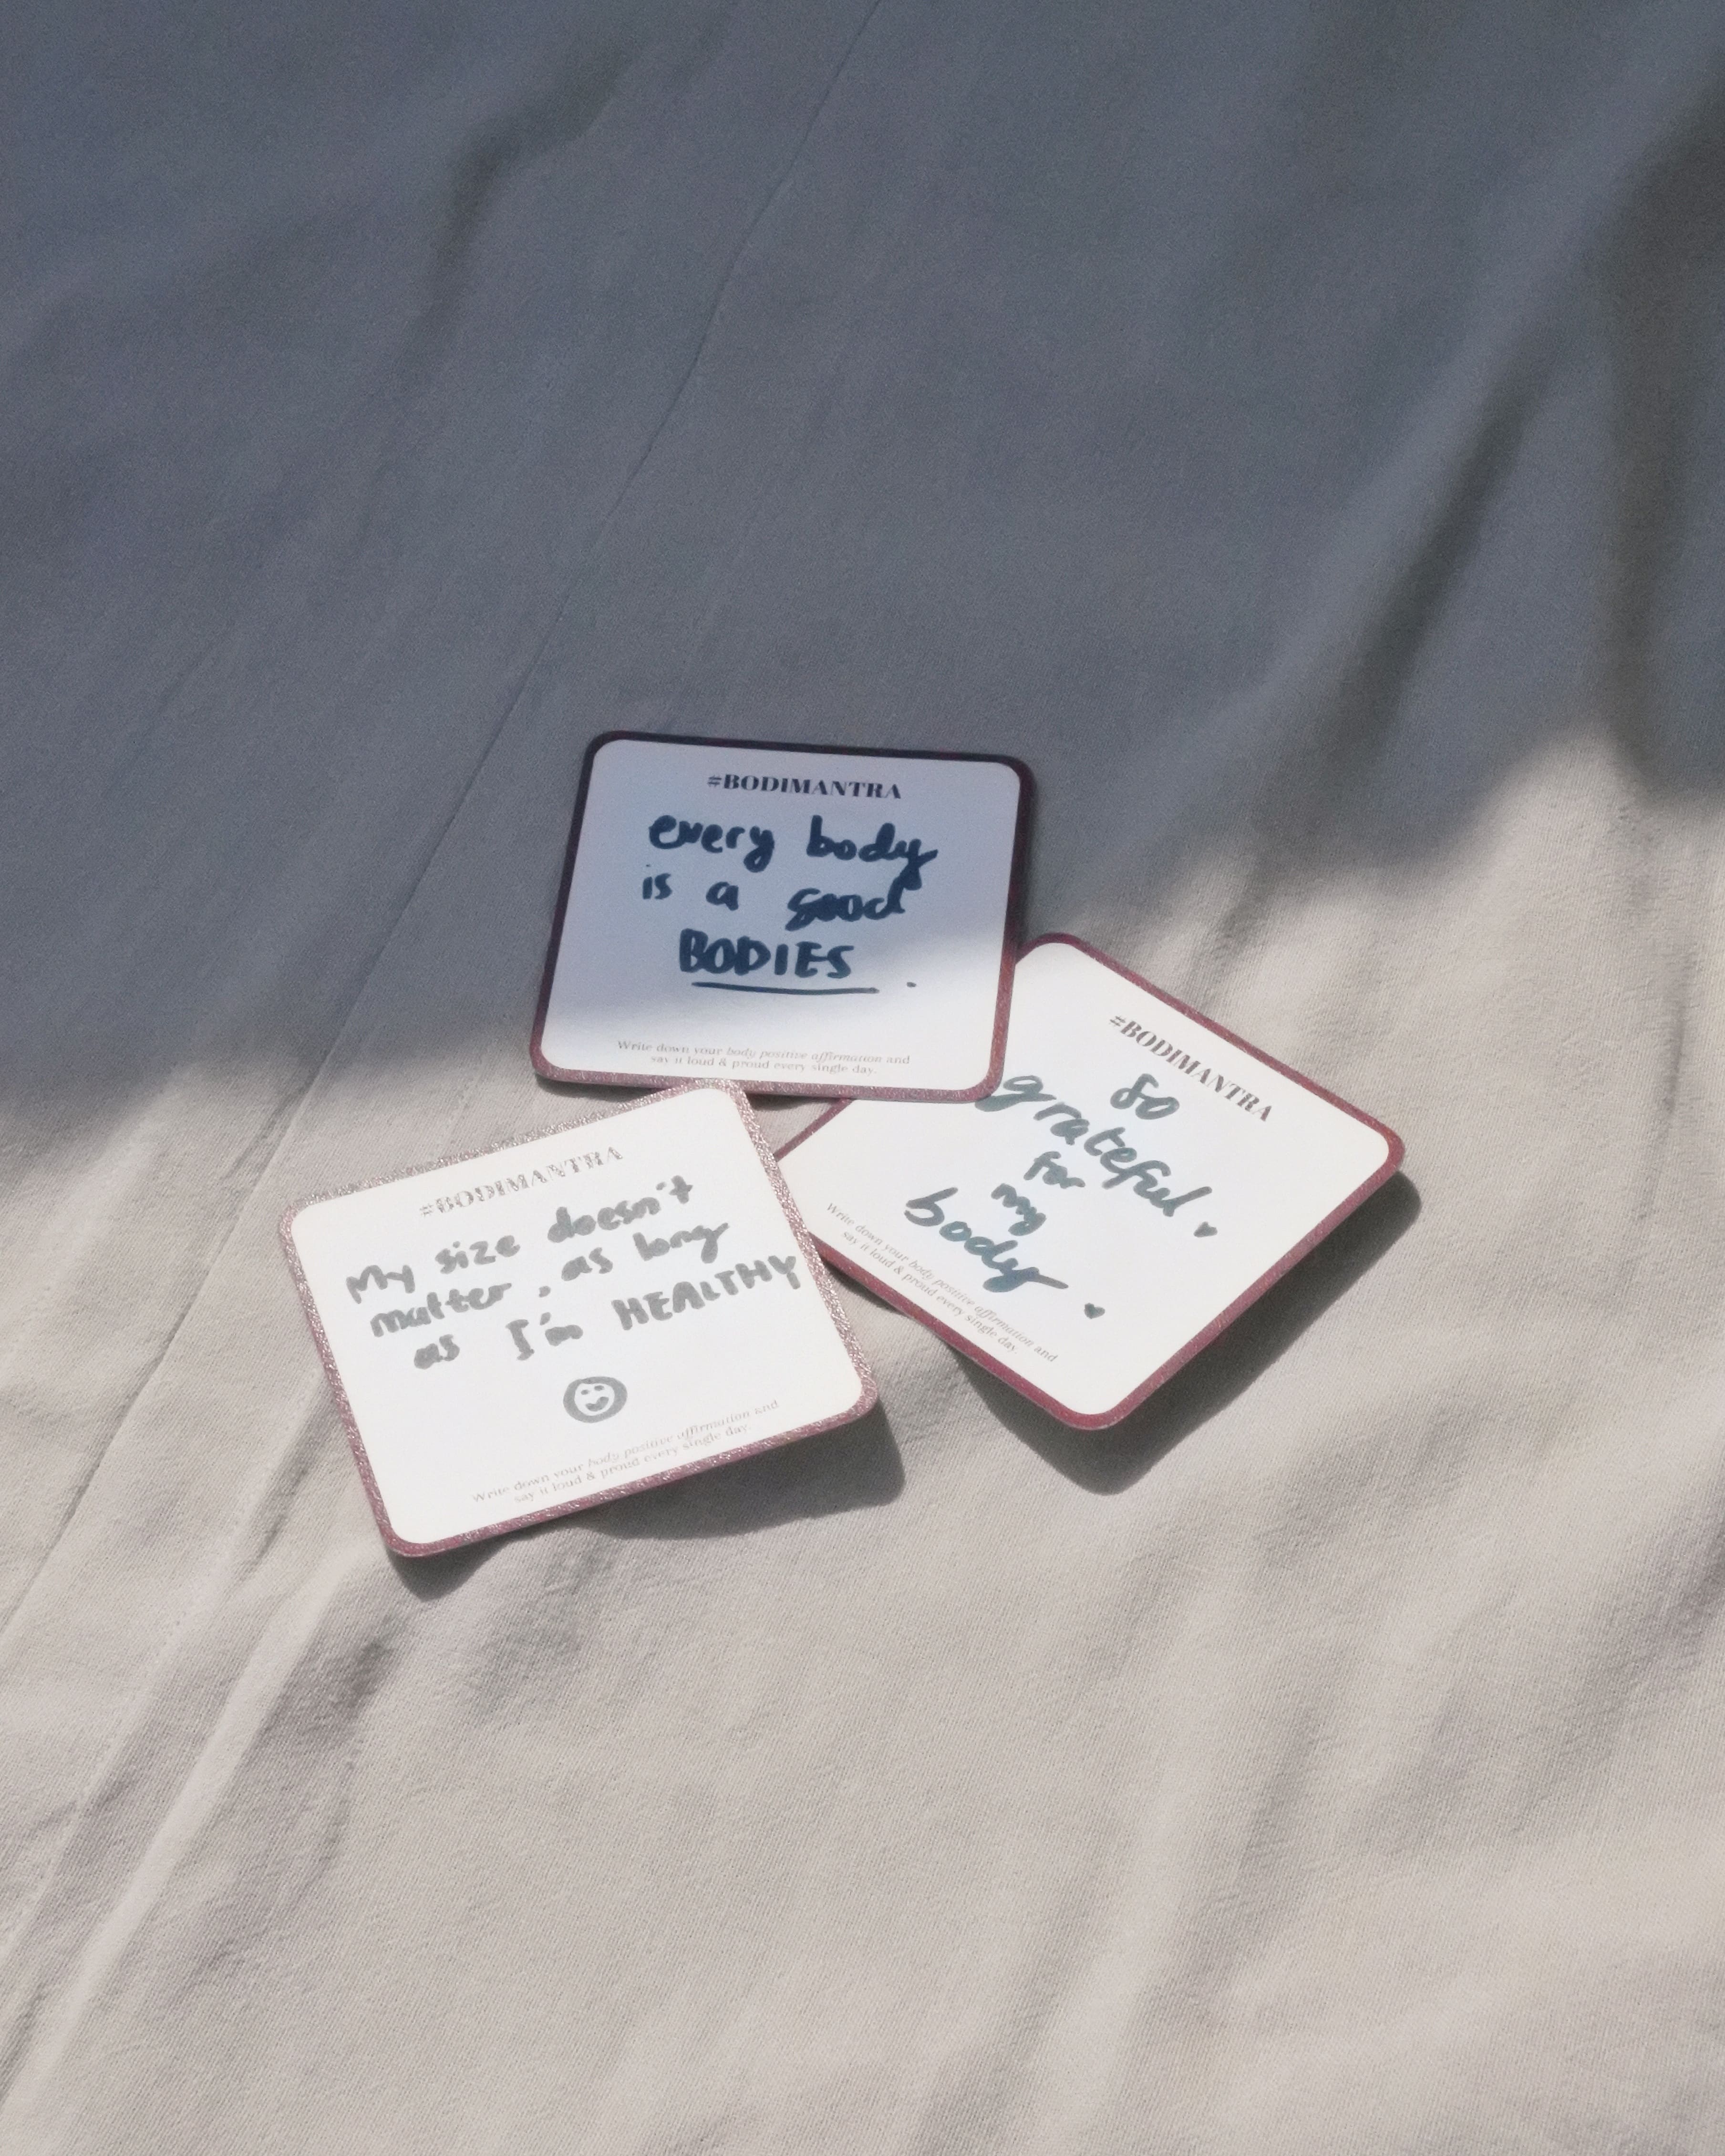 #BODIMANTRA
every body
is a good
BODIES.
Write down your body positive affirmation and
say it loud & proud every single day.
#BODIMANTRA
So
grateful
for
my
body
Write down your body positive affirmation and
say it loud & proud every single day.
#BODIMANTRA
My size doesn't
matter, as long
as I'm HEALTHY
Write down your body positive affirmation and
say it loud & proud every single day.